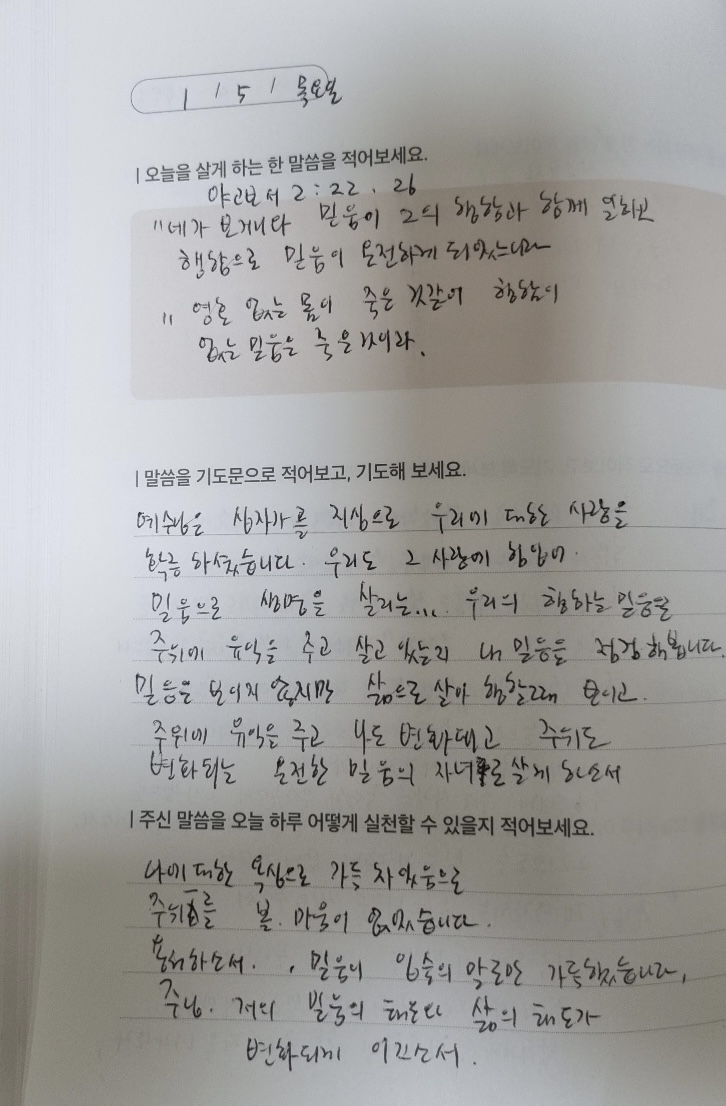 1 / 5 / 목요일
| 오늘을 살게 하는 한 말씀을 적어보세요.
야고보서 2:22, 26
"네가 보거니와 믿음이 그의 행함과 함께 일하고
행함으로 믿음이 온전하게 되었느니라
" 영혼 없는 몸이 죽은 것같이 행함이
없는 믿음은 죽은 것이라.
| 말씀을 기도문으로 적어보고, 기도해 보세요.
예수님은 십자가를 지심으로 우리에 대한 사랑을
확증 하셨습니다. 우리도 그 사랑에 힘입어.
믿음으로 생명을 살리는... 우리의 행하는 믿음을
주위에 유익을 주고 살고 있는지 내 믿음을 점검 해봅니다.
믿음은 보이지 않지만 삶으로 살아 행할때 보이고.
주위에 유익을 주고 나도 변화되고 주위도
변화되는 온전한 믿음의 자녀로 살게 하소서
| 주신 말씀을 오늘 하루 어떻게 실천할 수 있을지 적어보세요.
나에 대한 욕심으로 가득 차있음으로
주위를 볼 마음이 없었습니다.
용서하소서. 믿음의 입술의 말로만 가득했습니다,
주님. 저의 믿음의 태도와 삶의 태도가
변화되게 이끄소서.